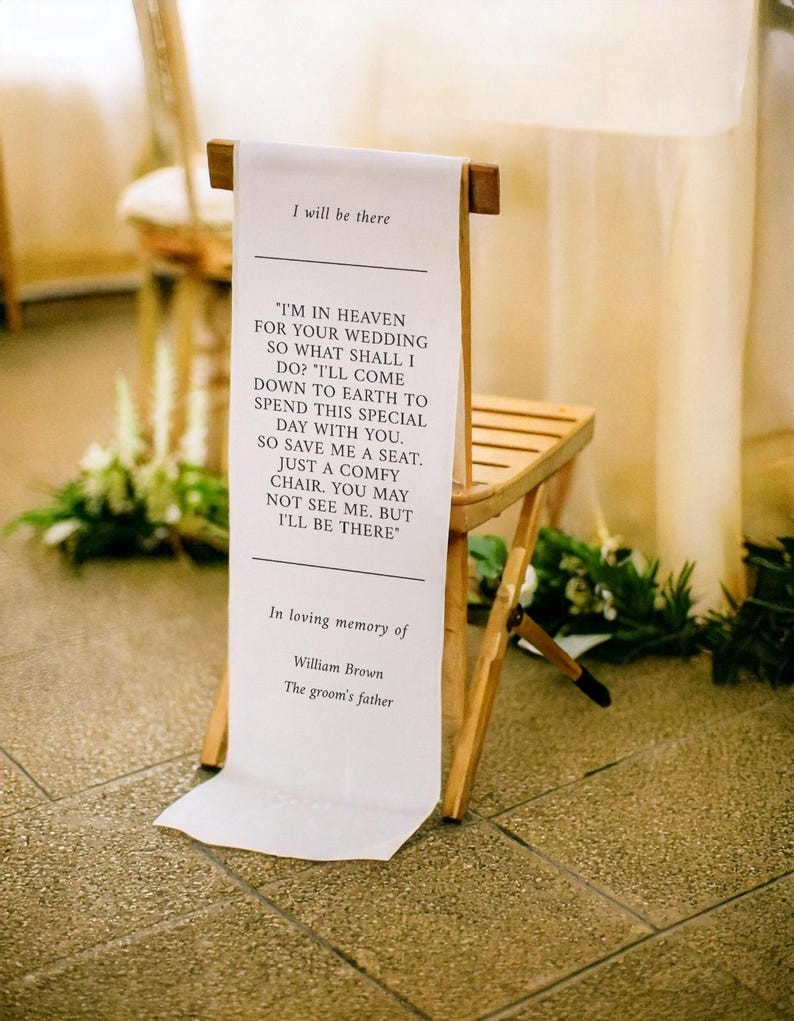 I will be there
"I'M IN HEAVEN
FOR YOUR WEDDING
SO WHAT SHALL I
DO? "I'LL COME
DOWN TO EARTH TO
SPEND THIS SPECIAL
DAY WITH YOU.
SO SAVE ME A SEAT.
JUST A COMFY
CHAIR. YOU MAY
NOT SEE ME. BUT
I'LL BE THERE"
In loving memory of
William Brown
The groom's father